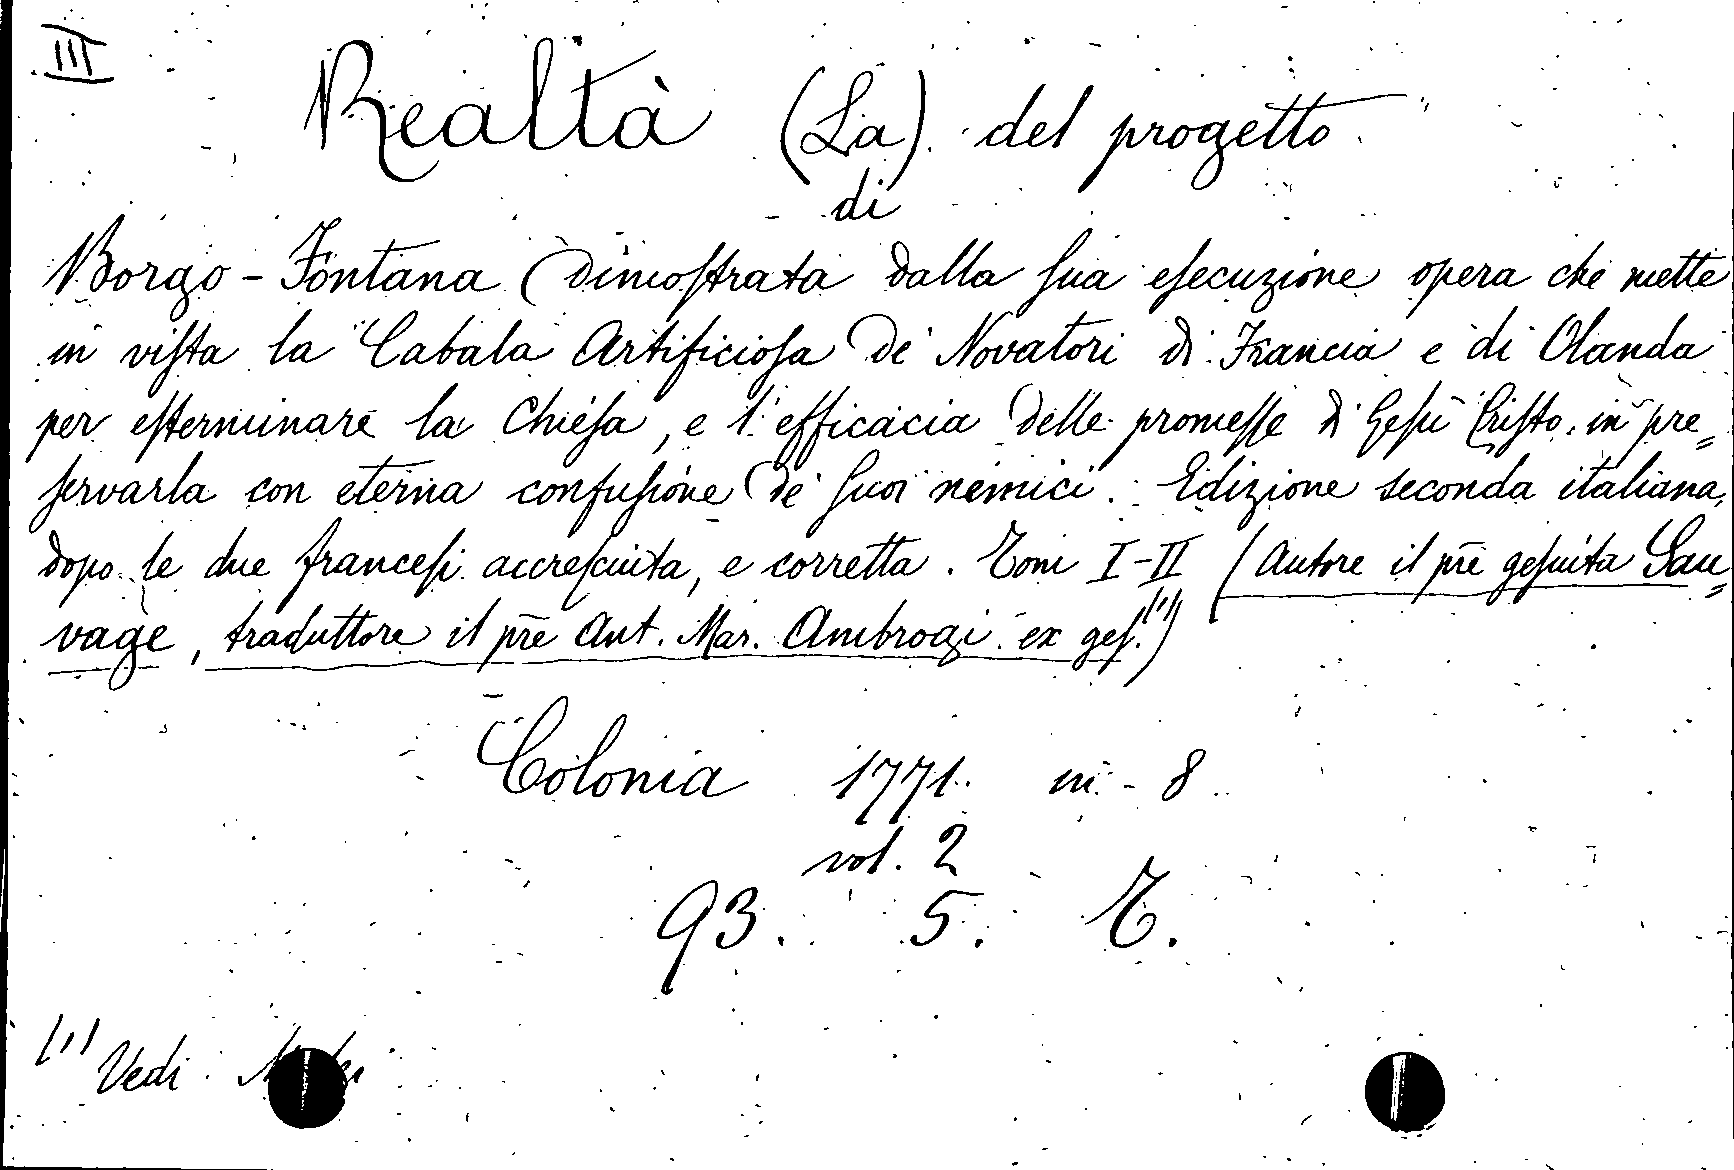 III
Realtà (La) del progetto
di
Borgo-Fontana dimostrata dalla sua esecuzione opera che mette
in vista la Cabala Artificiosa de' Novatori di Francia e di Olanda
per esterminare la Chiesa, e l'efficacia delle promesse di Gesù Cristo in pre=
servarla con eterna confusione de' suoi nemici. Edizione seconda italiana,
dopo le due francesi accresciuta, e corretta. Tom I-II (Autore il pre gesuita Sau=
vage, traduttore il pre Ant. Mar. Ambrogi ex ges.(1))
Colonia 1771. in-8
vol. 2
93. 5. T.
(1) Vedi